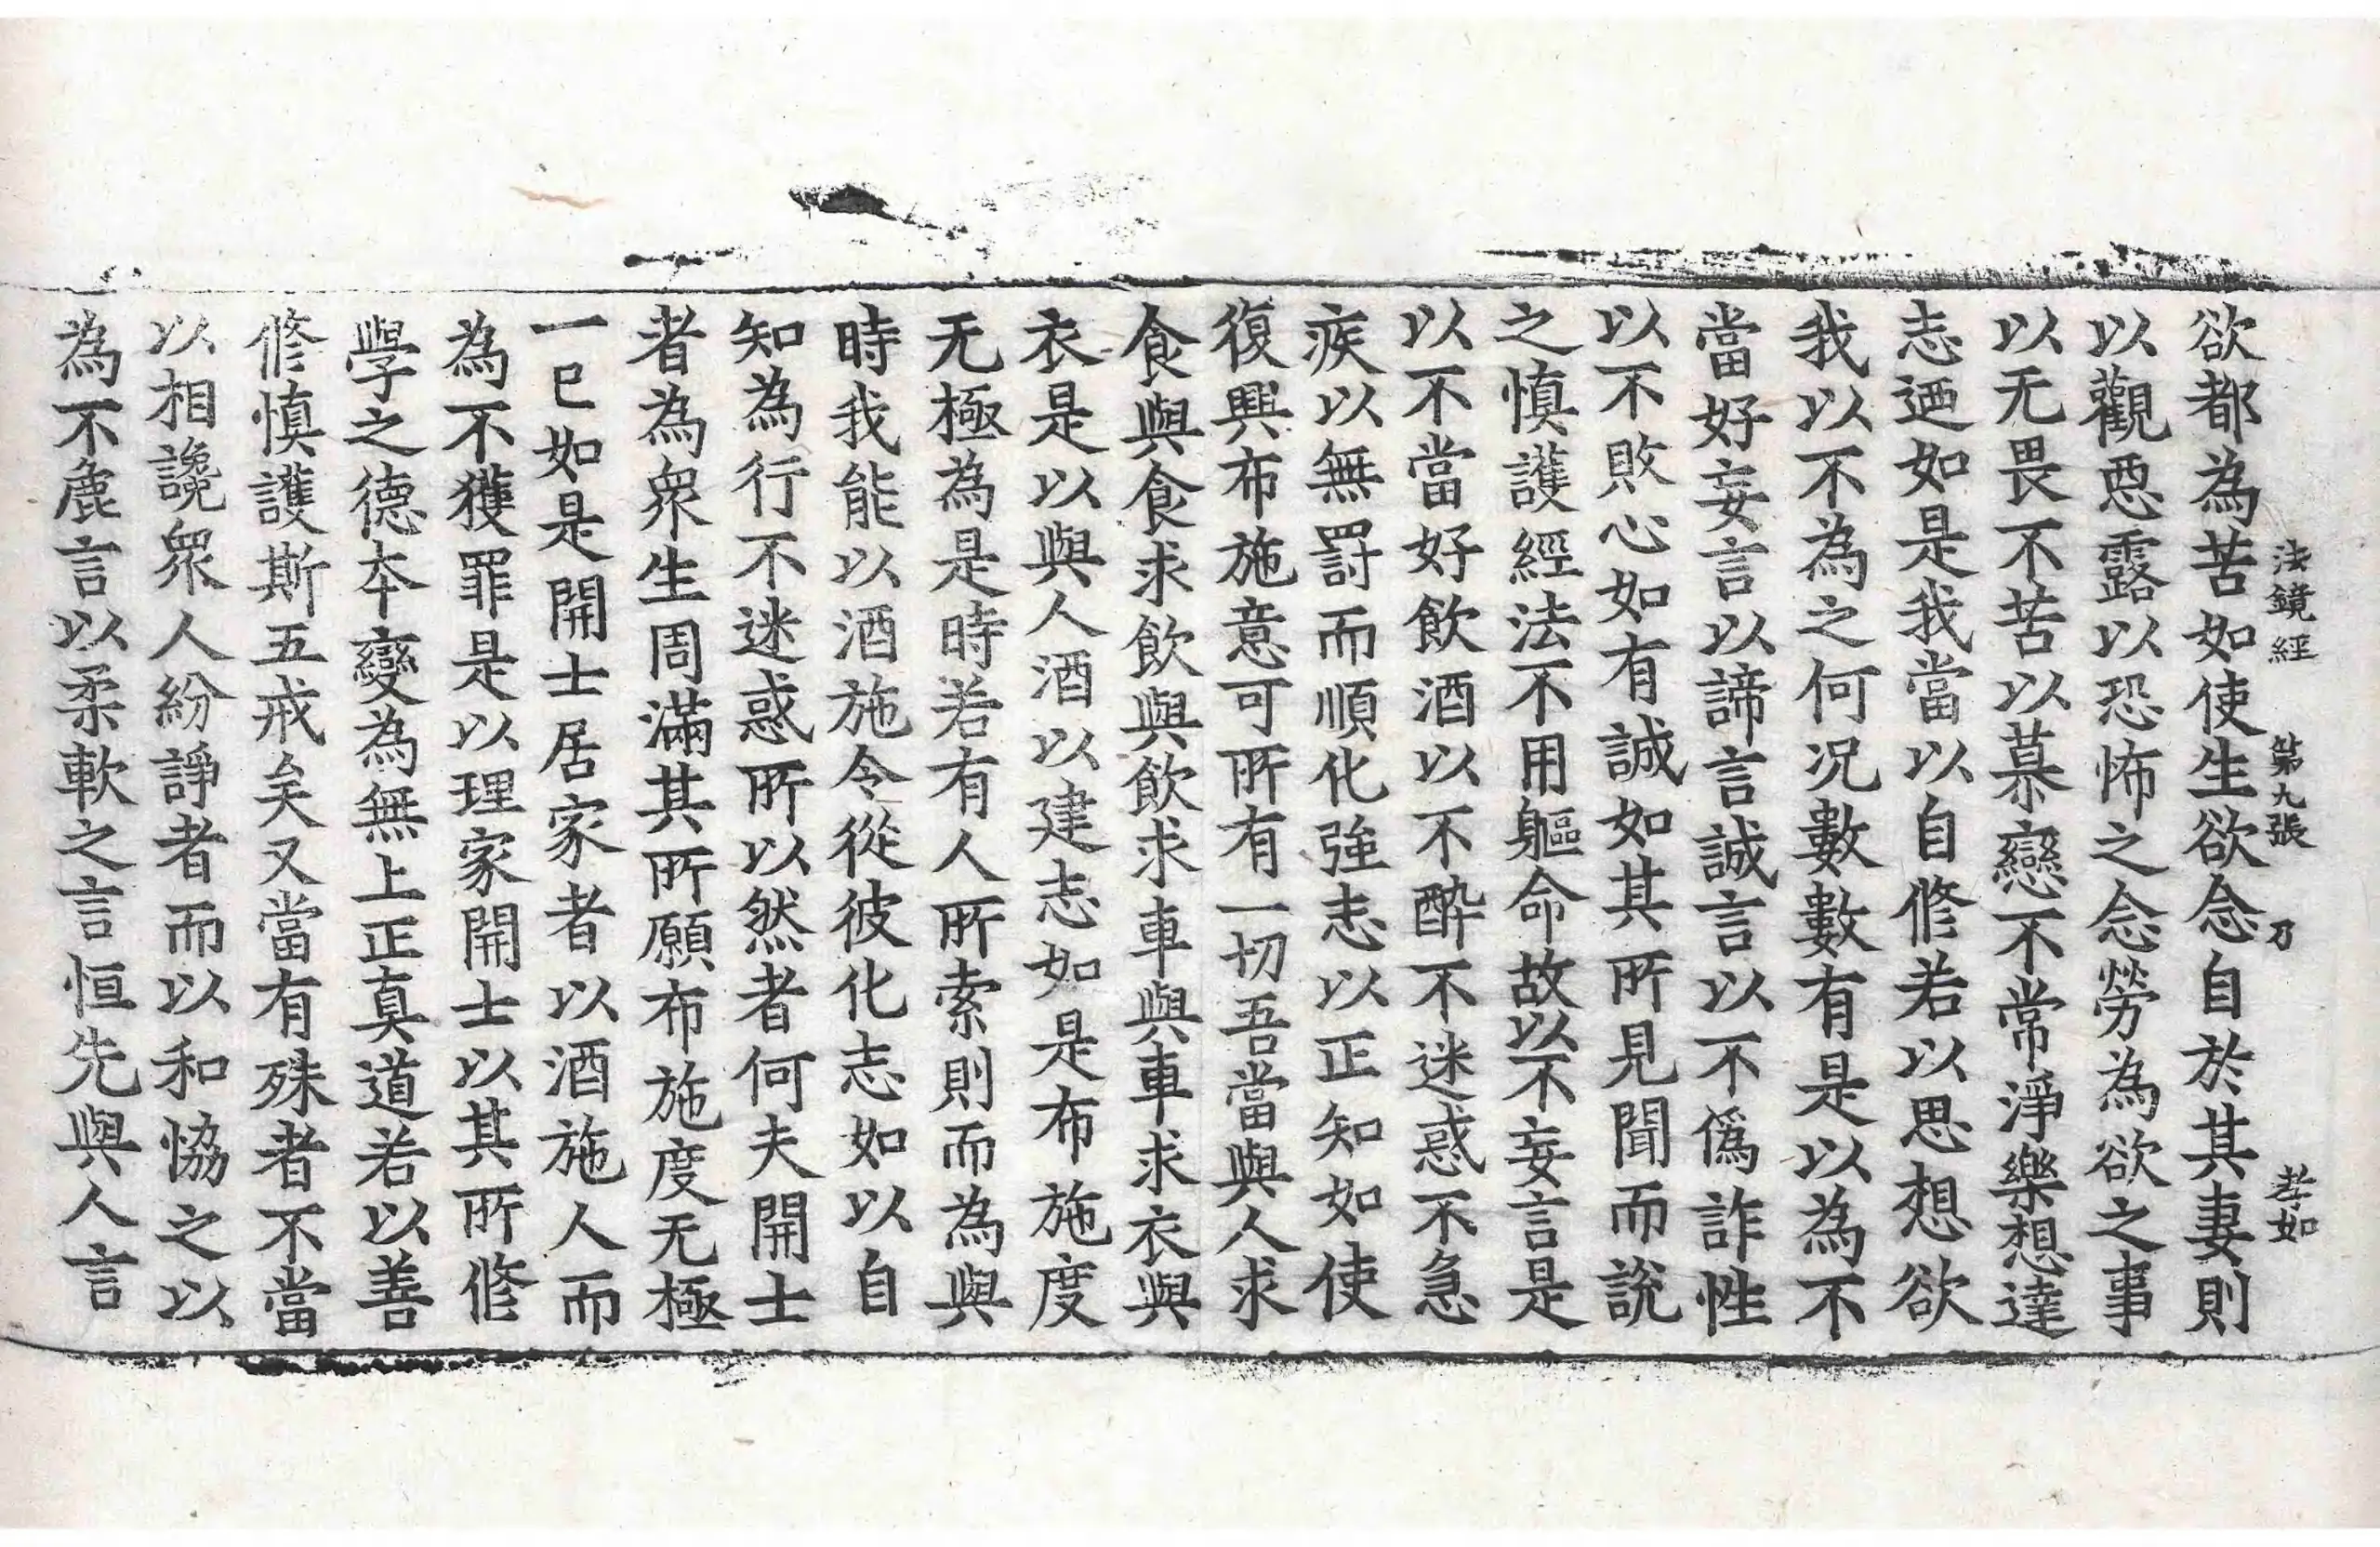 法鏡經 第九張 乃 孝如
欲都為苦如使生欲念自於其妻則
以觀惡露以恐怖之念勞為欲之事
以无畏不苦以慕戀不常淨樂想達
志迺如是我當以自修若以思想欲
我以不為之何況數數有是以為不
當好妄言以諦言誠言以不偽詐性
以不敗心如有誠如其所見聞而說
之慎護經法不用軀命故以不妄言是
以不當好飲酒以不醉不迷惑不急
疾以無罰而順化強志以正知如使
復興布施意可所有一切吾當與人求
食與食求飲與飲求車與車求衣與
衣是以與人酒以建志如是布施度
无極為是時若有人所索則而為與
時我能以酒施令從彼化志如以自
知為行不迷惑所以然者何夫開士
者為衆生周滿其所願布施度无極
一已如是開士居家者以酒施人而
為不獲罪是以理家開士以其所修
學之德本變為無上正真道若以善
修慎護斯五戒矣又當有殊者不當
以相讒衆人紛諍者而以和恊之以
為不麁言以柔軟之言恒先與人言